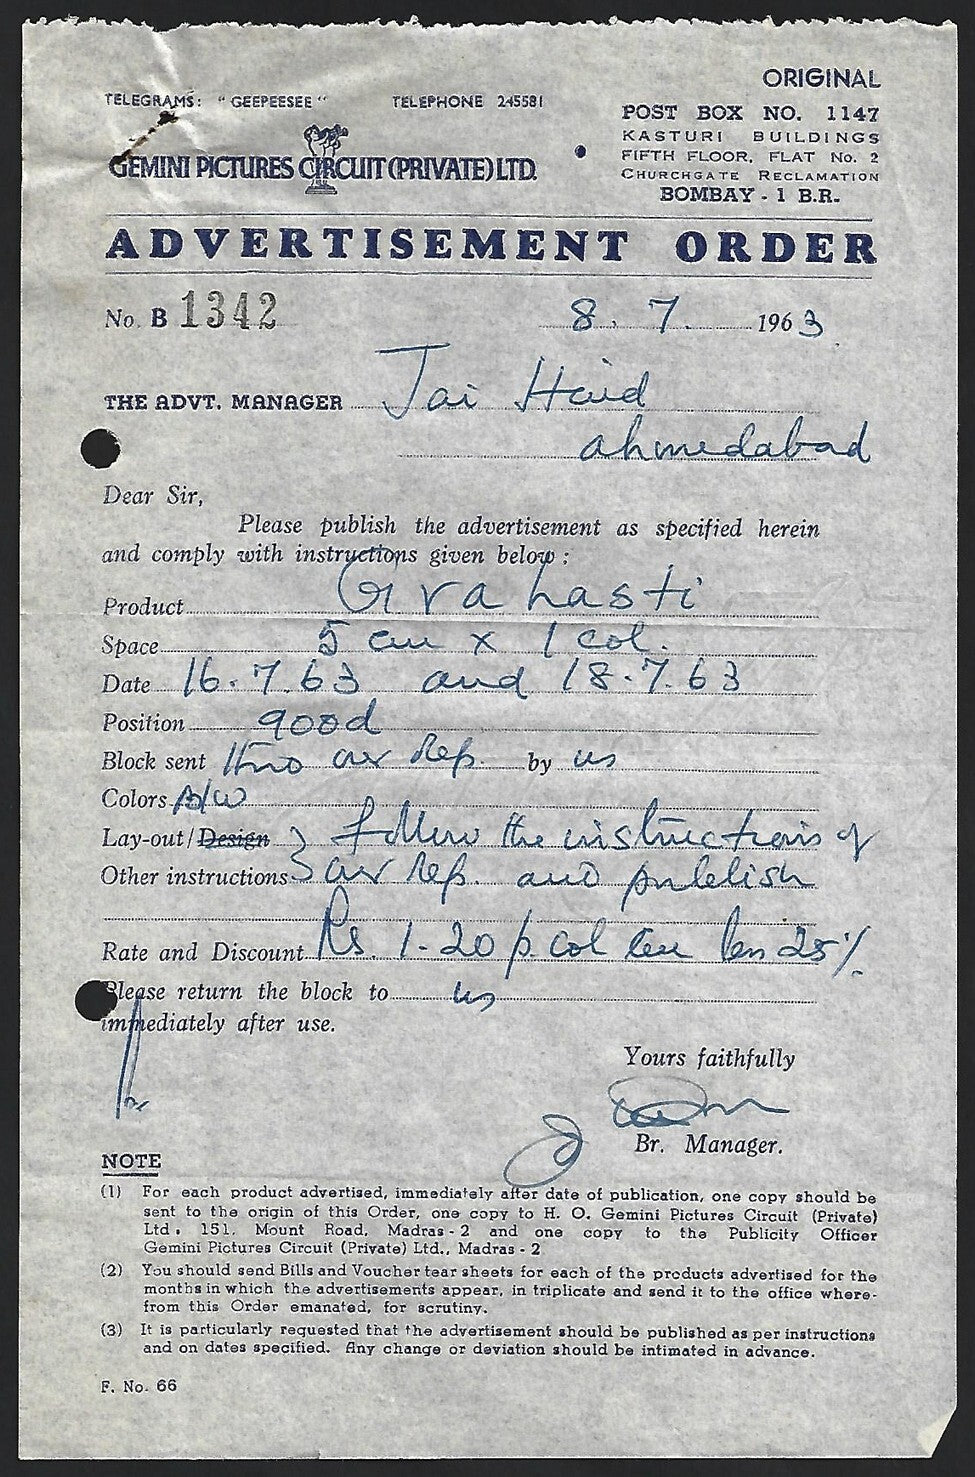 ORIGINAL
TELEGRAMS: "GEEPEESEE" TELEPHONE 245581
POST BOX NO. 1147
KASTURI BUILDINGS
FIFTH FLOOR, FLAT No. 2
CHURCHGATE RECLAMATION
BOMBAY - 1 B.R.
GEMINI PICTURES CIRCUIT (PRIVATE) LTD.
ADVERTISEMENT ORDER
No. B 1342 8. 7. 1963
THE ADVT. MANAGER Jai Hind
ahmedabad
Dear Sir,
Please publish the advertisement as specified herein
and comply with instructions given below :
Product Grahasti
Space 5 cm x 1 col.
Date 16.7.63 and 18.7.63
Position good
Block sent thro our Rep. by us
Colors B/W
Lay-out/Design } follow the instructions of
Other instructions } our Rep. and publish
Rate and Discount Rs. 1-20 p. col cm less 25%
Please return the block to us
immediately after use.
Yours faithfully
Br. Manager.
NOTE
(1) For each product advertised, immediately after date of publication, one copy should be
sent to the origin of this Order, one copy to H. O. Gemini Pictures Circuit (Private)
Ltd., 151, Mount Road, Madras - 2 and one copy to the Publicity Officer
Gemini Pictures Circuit (Private) Ltd., Madras - 2
(2) You should send Bills and Voucher tear sheets for each of the products advertised for the
months in which the advertisements appear, in triplicate and send it to the office where-
from this Order emanated, for scrutiny.
(3) It is particularly requested that the advertisement should be published as per instructions
and on dates specified. Any change or deviation should be intimated in advance.
F. No. 66